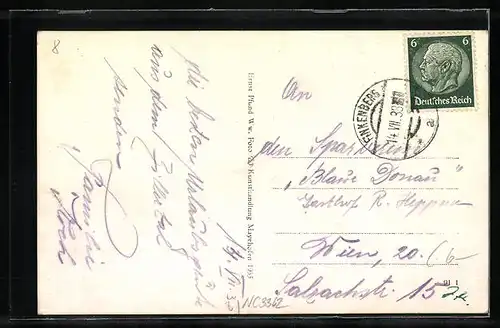 8
Die besten Urlaubsgrüße
aus dem Zillertal
senden
Familie
14. VII. 39
NC3342
Ernst Pfund Wwe., Post- u. Kunsthandlung Mayrhofen 1935
FINKENBERG
14. VII. 39
a
6 6
Deutsches Reich
An
den Sparverein
"Blaue Donau"
Gasthof R. Heppner
Wien, 20.
Salzachstr. 15